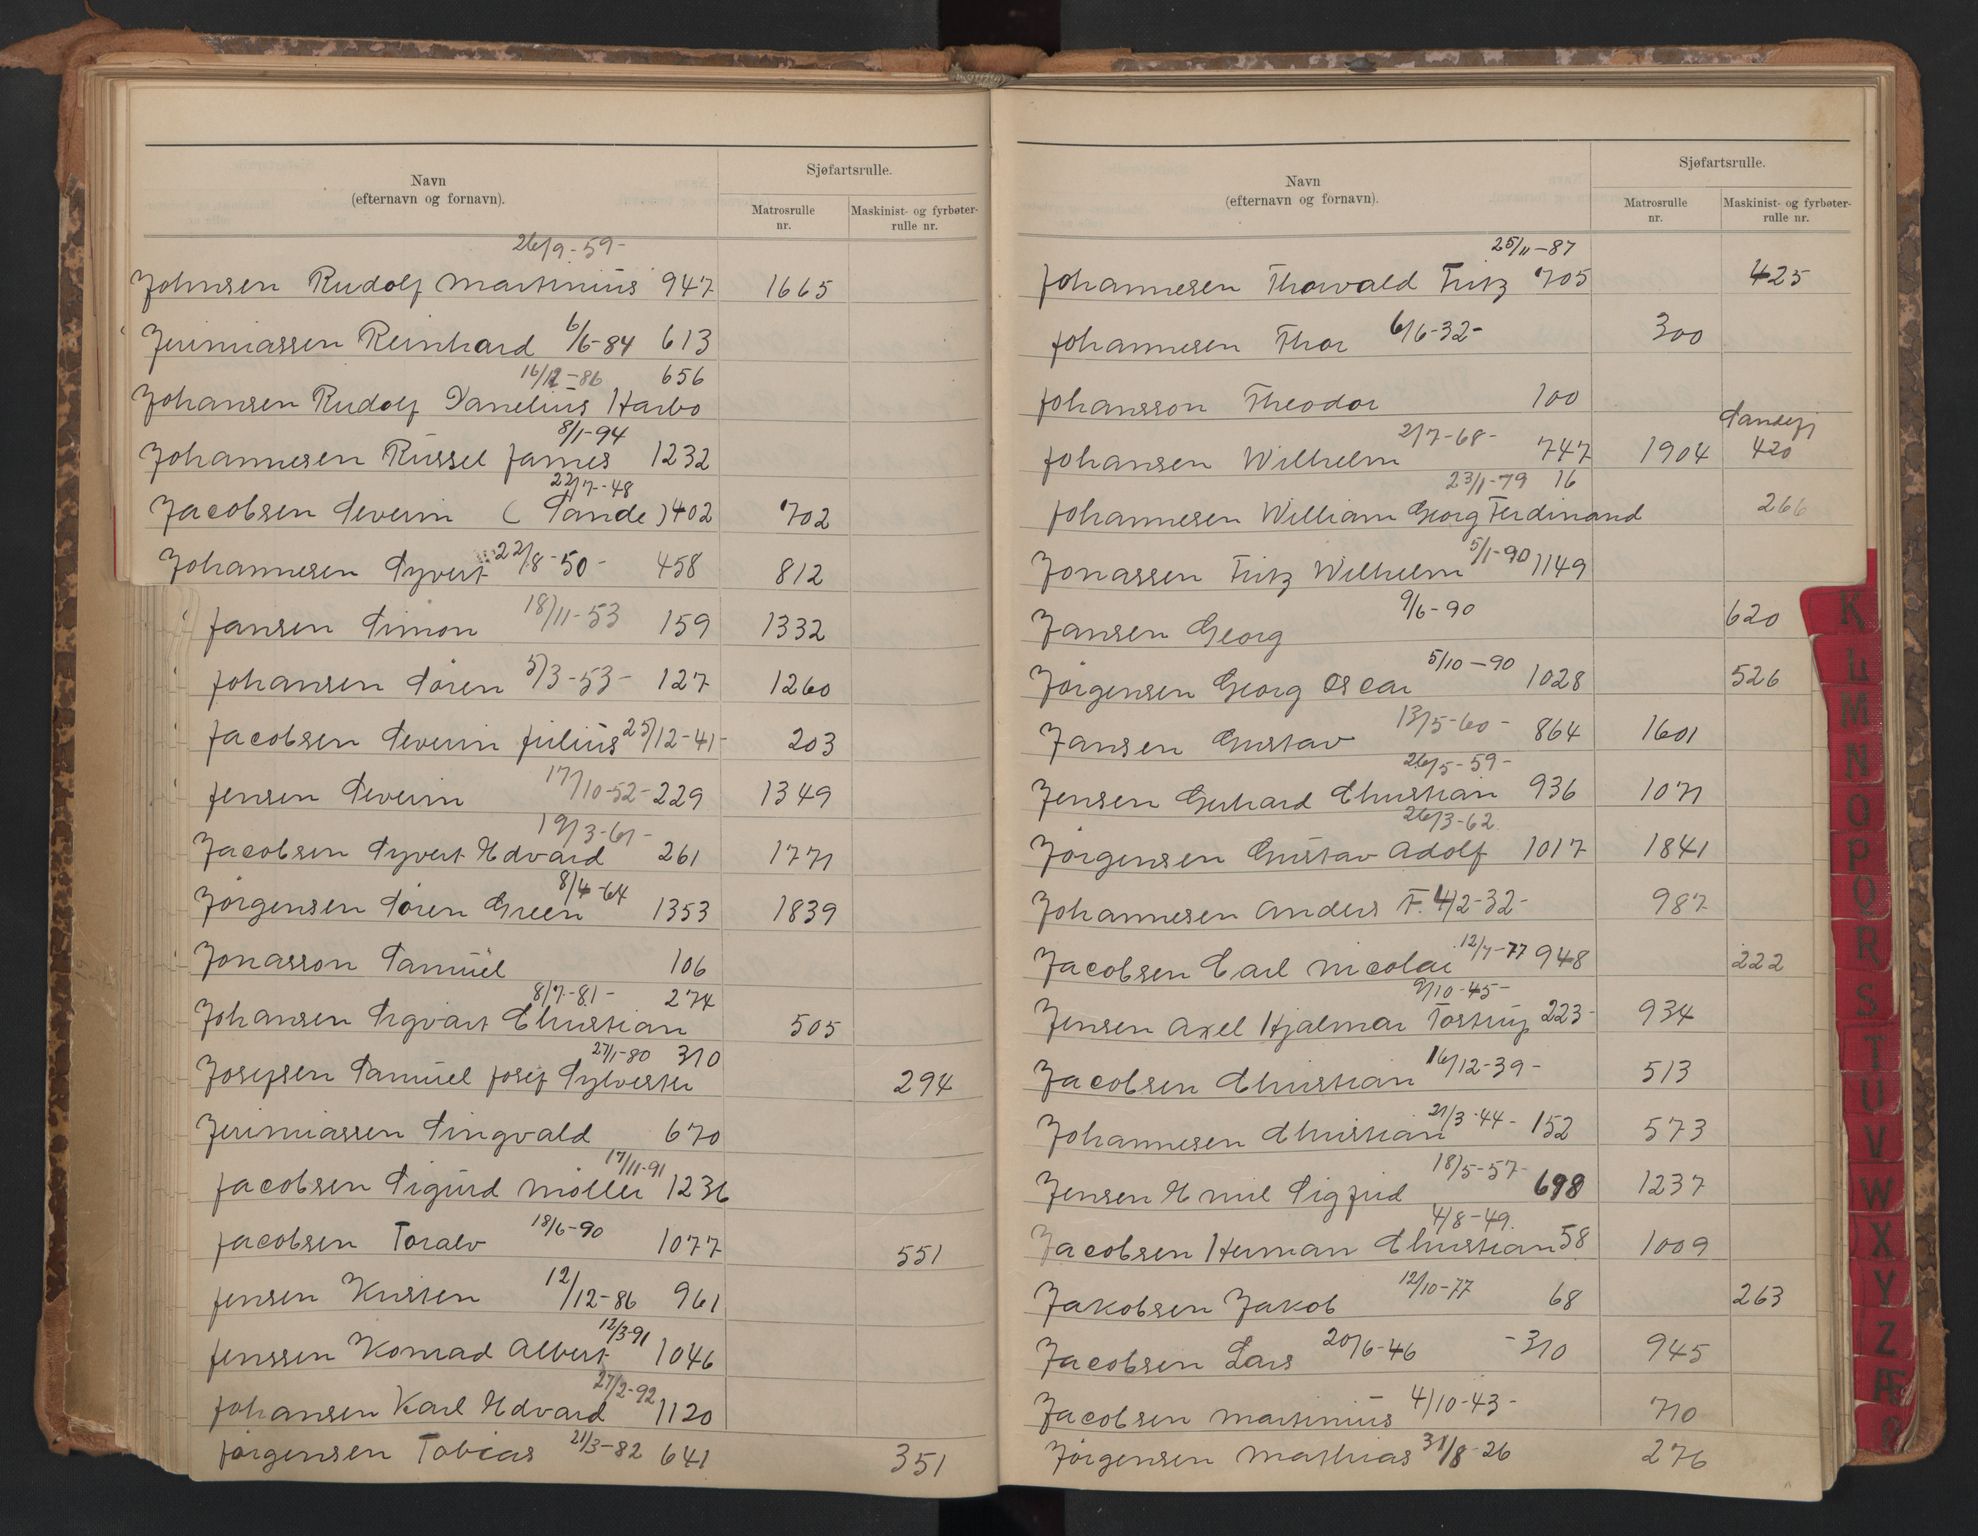 Navn
(efternavn og fornavn).
Sjøfartsrulle.
Matrosrulle
nr.
Maskinist- og fyrbøter-
rulle nr.
26/9-59-
Johnsen Rudolf Martinius 947 1665
Jerimiassen Reinhard 6/6-84 613
16/12-86 656
Johansen Rudolf Danelius Harbo
8/1-94
Johannesen Russel James 1232
22/7-48
Jacobsen Severin (Sande) 402 702
Johannesen Syvert 22/8-50- 458 812
Jansen Simon 18/11-53 159 1332
Johansen Søren 5/3-53- 127 1260
Jacobsen Severin Julius 25/12-41- 203
Jensen Severin 17/10-52- 229 1349
19/3-61-
Jacobsen Syvert Edvard 261 1771
8/4-64
Jørgensen Søren Green 1353 1839
Jonasson Samuel 106
8/7-81- 274
Johansen Sigvart Christian 505
27/1-80 310
Josefsen Samuel Josef Sylvester 294
Jerimiassen Singvald 670
17/11-91
Jacobsen Sigurd Møller 1236
Jacobsen Toralv 18/6-90 1077 551
Jensen Kristen 12/12-86 961
12/3-91
Jenssen Konrad Albert 1046
27/2-92
Johansen Karl Edvard 1120
Jørgensen Tobias 21/3-82 641 351
Navn
(efternavn og fornavn).
Sjøfartsrulle.
Matrosrulle
nr.
Maskinist- og fyrbøter-
rulle nr.
25/11-87
Johannesen Thorvald Fritz 705 425
Johannesen Thor 6/6-32- 300
Johansson Theodor 100
Sandefj
Johansen Wilhelm 2/7-68- 747 1904 420
23/1-79 16
Johannesen William Georg Ferdinand 266
Jonassen Fritz Wilhelm 5/1-90 1149
Jansen Georg 9/6-90 620
Jørgensen Georg Oscar 5/10-90 1028 526
Jansen Gustav 13/5-60- 864 1601
26/5-59-
Jensen Gerhard Christian 936 1071
26/3-62.
Jørgensen Gustav Adolf 1017 1841
Johannesen Anders F. 4/2-32- 987
Jacobsen Carl Nicolai 12/7-77 948 222
9/10-45-
Jensen Axel Hjalmar Tostrup 223- 934
Jacobsen Christian 16/12-39- 513
Johannesen Christian 21/3-44- 152 573
Jensen Emil Sigfrid 18/5-57- 698 1237
4/8-49.
Jacobsen Herman Christian 58 1009
Jakobsen Jakob 12/10-77 68 263
Jacobsen Lars 20/6-46 -310 945
Jacobsen Martinius 4/10-43- 710
Jørgensen Mathias 31/8-26 276
K
L
M
N
O
P
Q
R
S
T
U
V
W
X
Y
Z
Æ
Ø